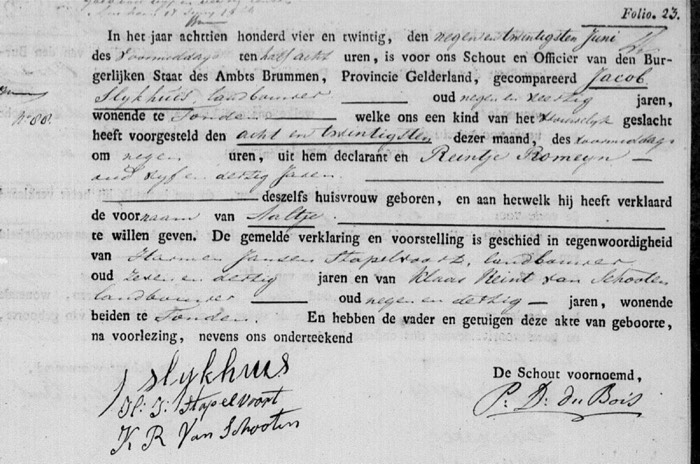 Folio. 23.
In het jaar achttien honderd vier en twintig, den negen en twintigsten Junij
des Voormiddags ten half acht uren, is voor ons Schout en Officier van den Bur-
gerlijken Staat des Ambts Brummen, Provincie Gelderland, gecompareerd Jacob
Slykhuis, landbouwer oud negen en veertig jaren,
No. 88.
wonende te Tonden welke ons een kind van het vrouwelyk geslacht
heeft voorgesteld den acht en twintigsten dezer maand, des voormiddags
om negen uren, uit hem declarant en Reintje Romeyn
oud vyf en dertig Jaren
deszelfs huisvrouw geboren, en aan hetwelk hij heeft verklaard
de voornaam van Aaltje
te willen geven. De gemelde verklaring en voorstelling is geschied in tegenwoordigheid
van Harmen Jansen Stapelvoort, landbouwer
oud zeven en dertig jaren en van Klaas Reint van Schooten
landbouwer oud negen en dertig jaren, wonende
beiden te Tonden. En hebben de vader en getuigen deze akte van geboorte,
na voorlezing, nevens ons onderteekend
J Slykhuis
H. J. Stapelvoort
K R Van Schooten
De Schout voornoemd,
P. D. du Bois